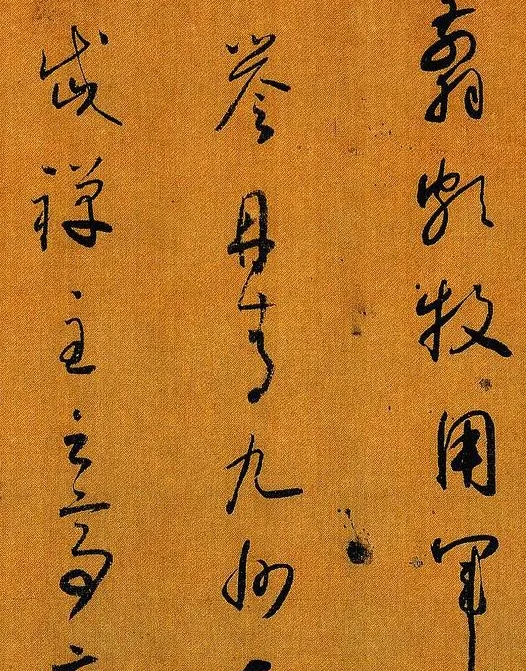 翦頗牧用軍
譽丹青九州
岱禪主云亭